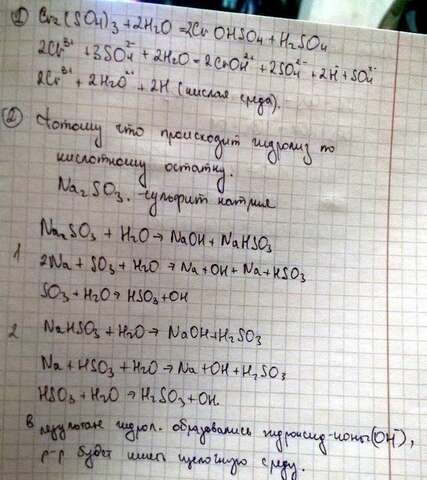 ① Cr₂(SO₄)₃ + 2H₂O = 2CrOHSO₄ + H₂SO₄
2Cr³⁺ + 3SO₄²⁻ + 2H₂O = 2CrOH²⁺ + 2SO₄²⁻ + 2H + SO₄²⁻
2Cr³⁺ + 2H₂O + 2H (кислая среда).
② Потому что происходит гидролиз по
кислотному остатку.
Na₂SO₃. - сульфит натрия
Na₂SO₃ + H₂O → NaOH + NaHSO₃
1
2Na + SO₃ + H₂O → Na + OH + Na + HSO₃
SO₃ + H₂O → HSO₃ + OH
2 NaHSO₃ + H₂O → NaOH + H₂SO₃
Na + HSO₃ + H₂O → Na + OH + H₂SO₃
HSO₃ + H₂O → H₂SO₃ + OH.
В результате гидрол. образовались гидроксид-ионы (OH⁻),
р-р будет иметь щелочную среду.